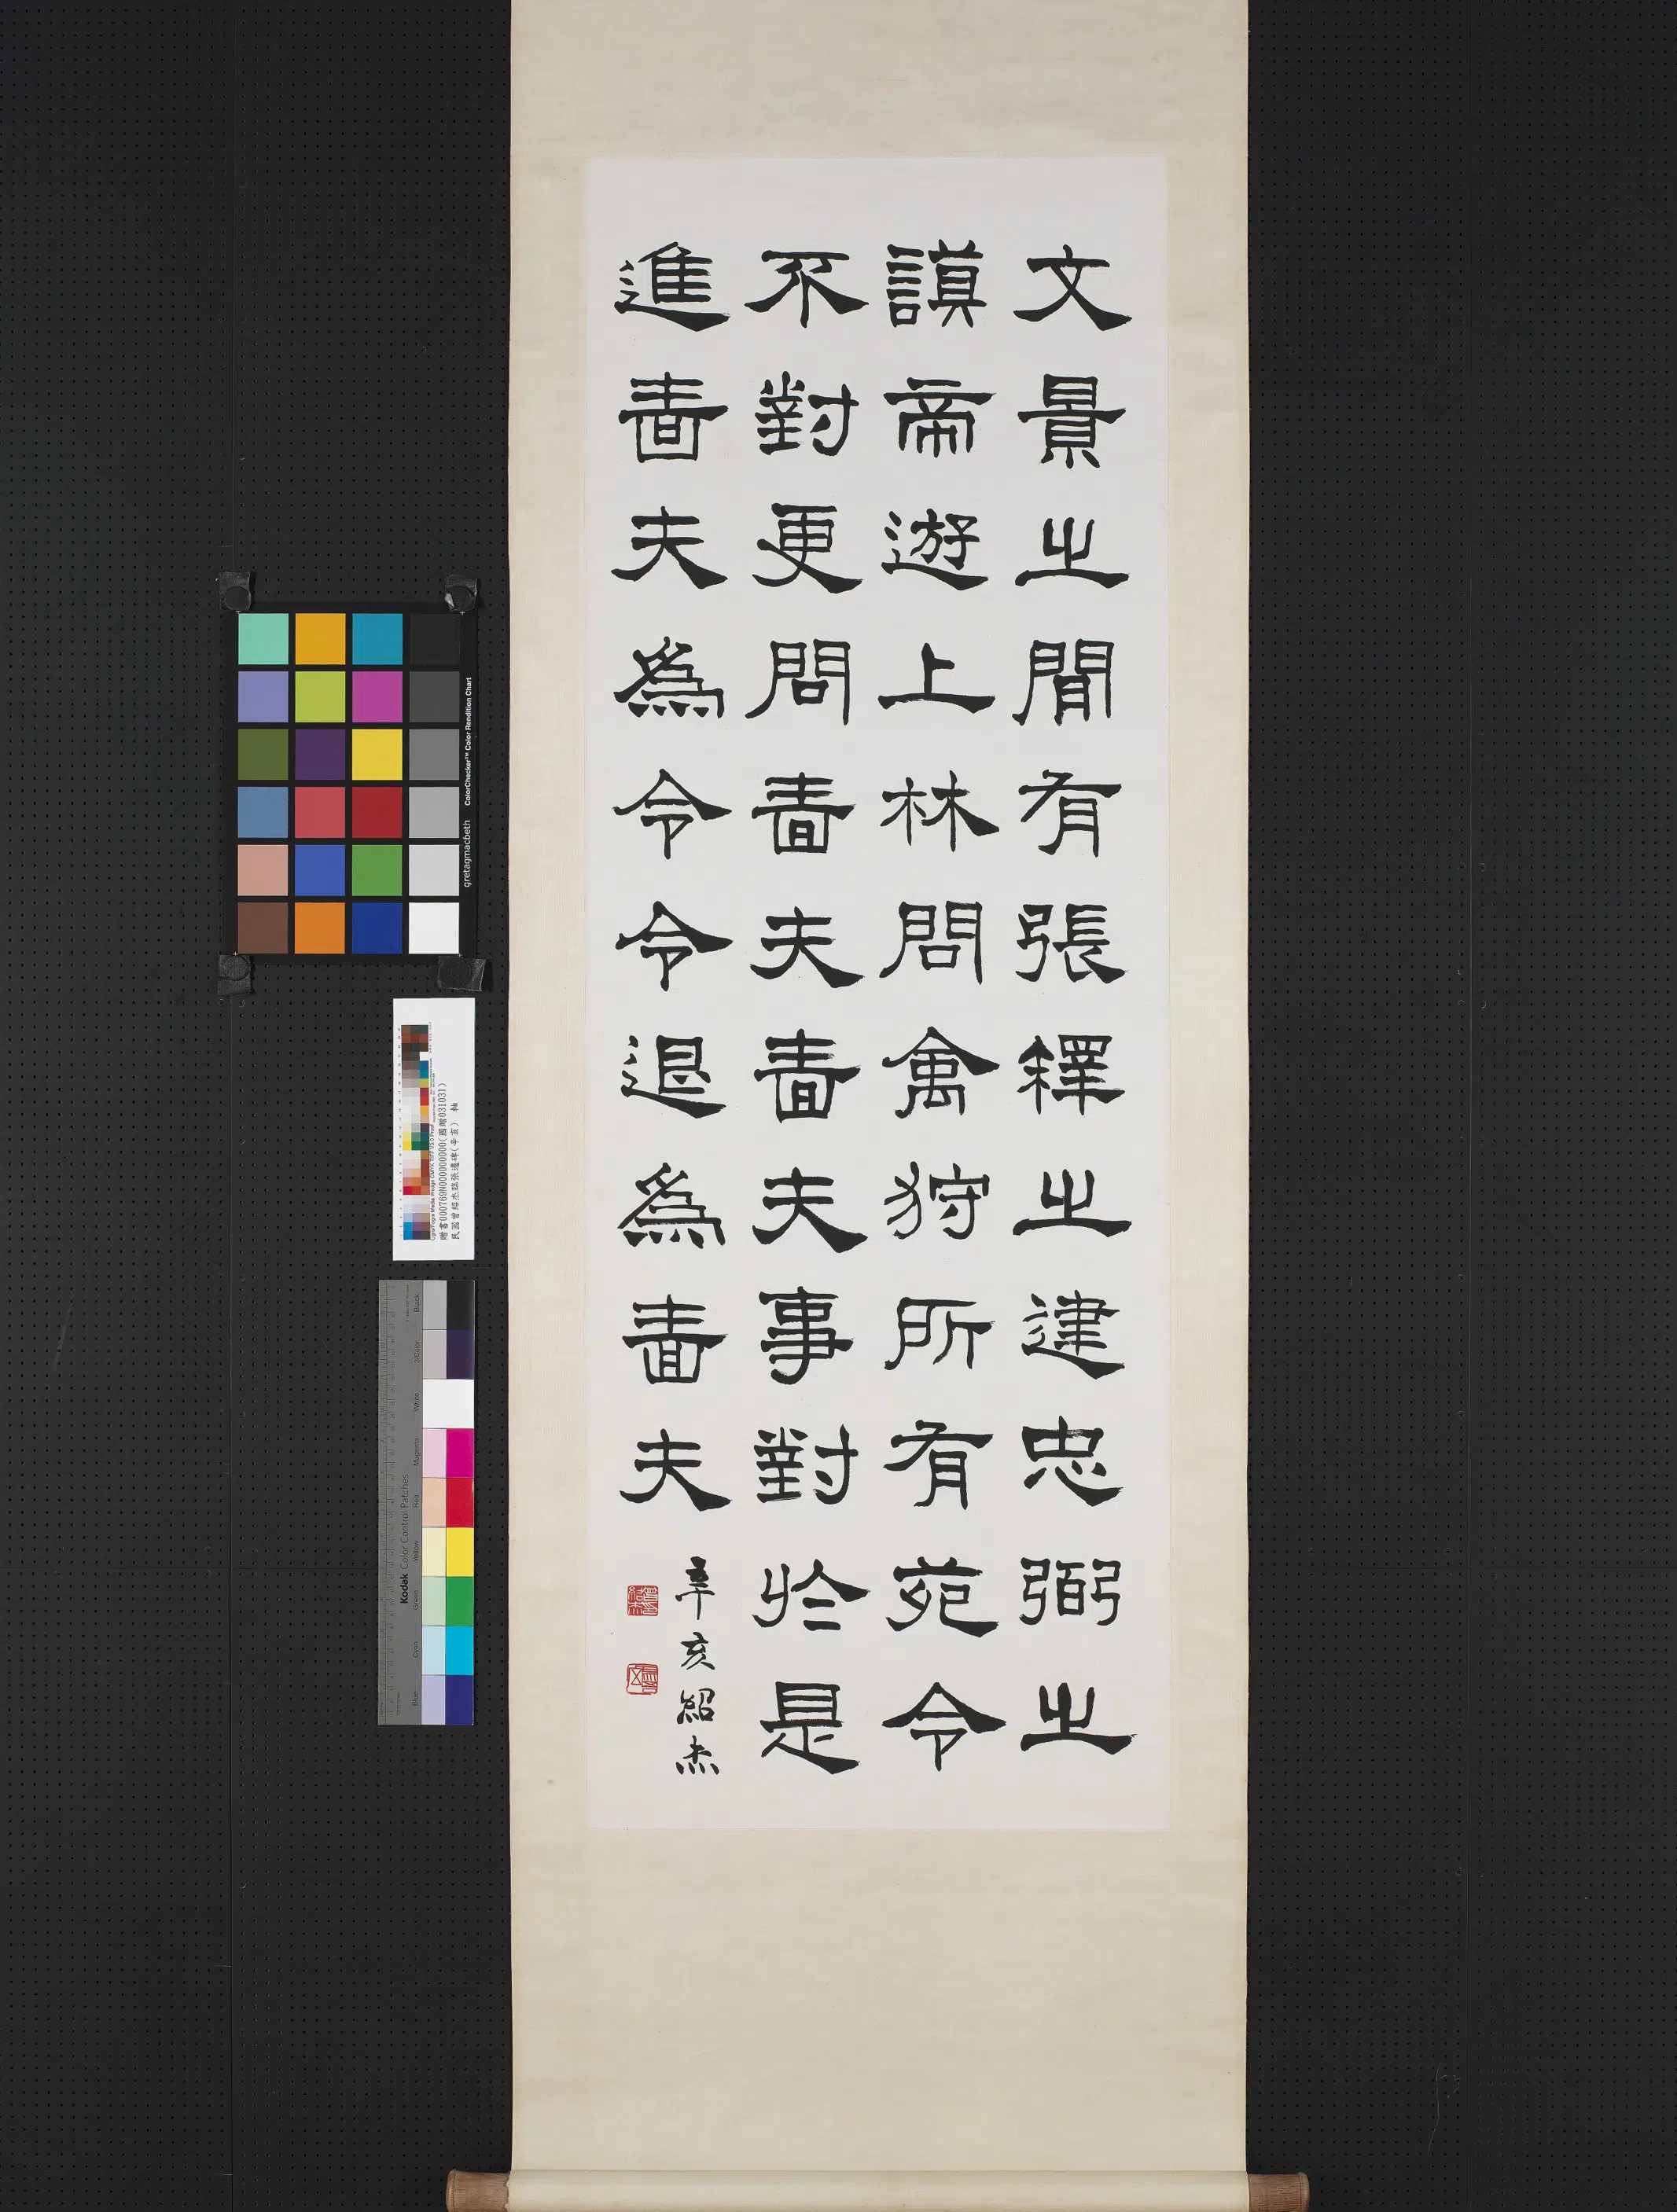 文景之間有張釋之建忠弼之
謨帝遊上林問禽狩所有苑令
不對更問嗇夫嗇夫事對於是
進嗇夫為令令退為嗇夫
辛亥紹杰
ColorChecker™ Color Rendition Chart
gretagmacbeth
贈書000769N000000000(國贈031031)
民國曾紹杰臨張遷碑(辛亥) 軸
Kodak Color Control Patches
Blue Cyan Green Yellow Red Magenta White 3/Color Black